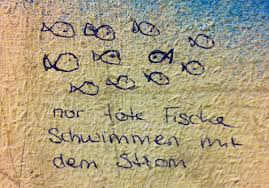 nur tote Fische
schwimmen mit
dem Strom